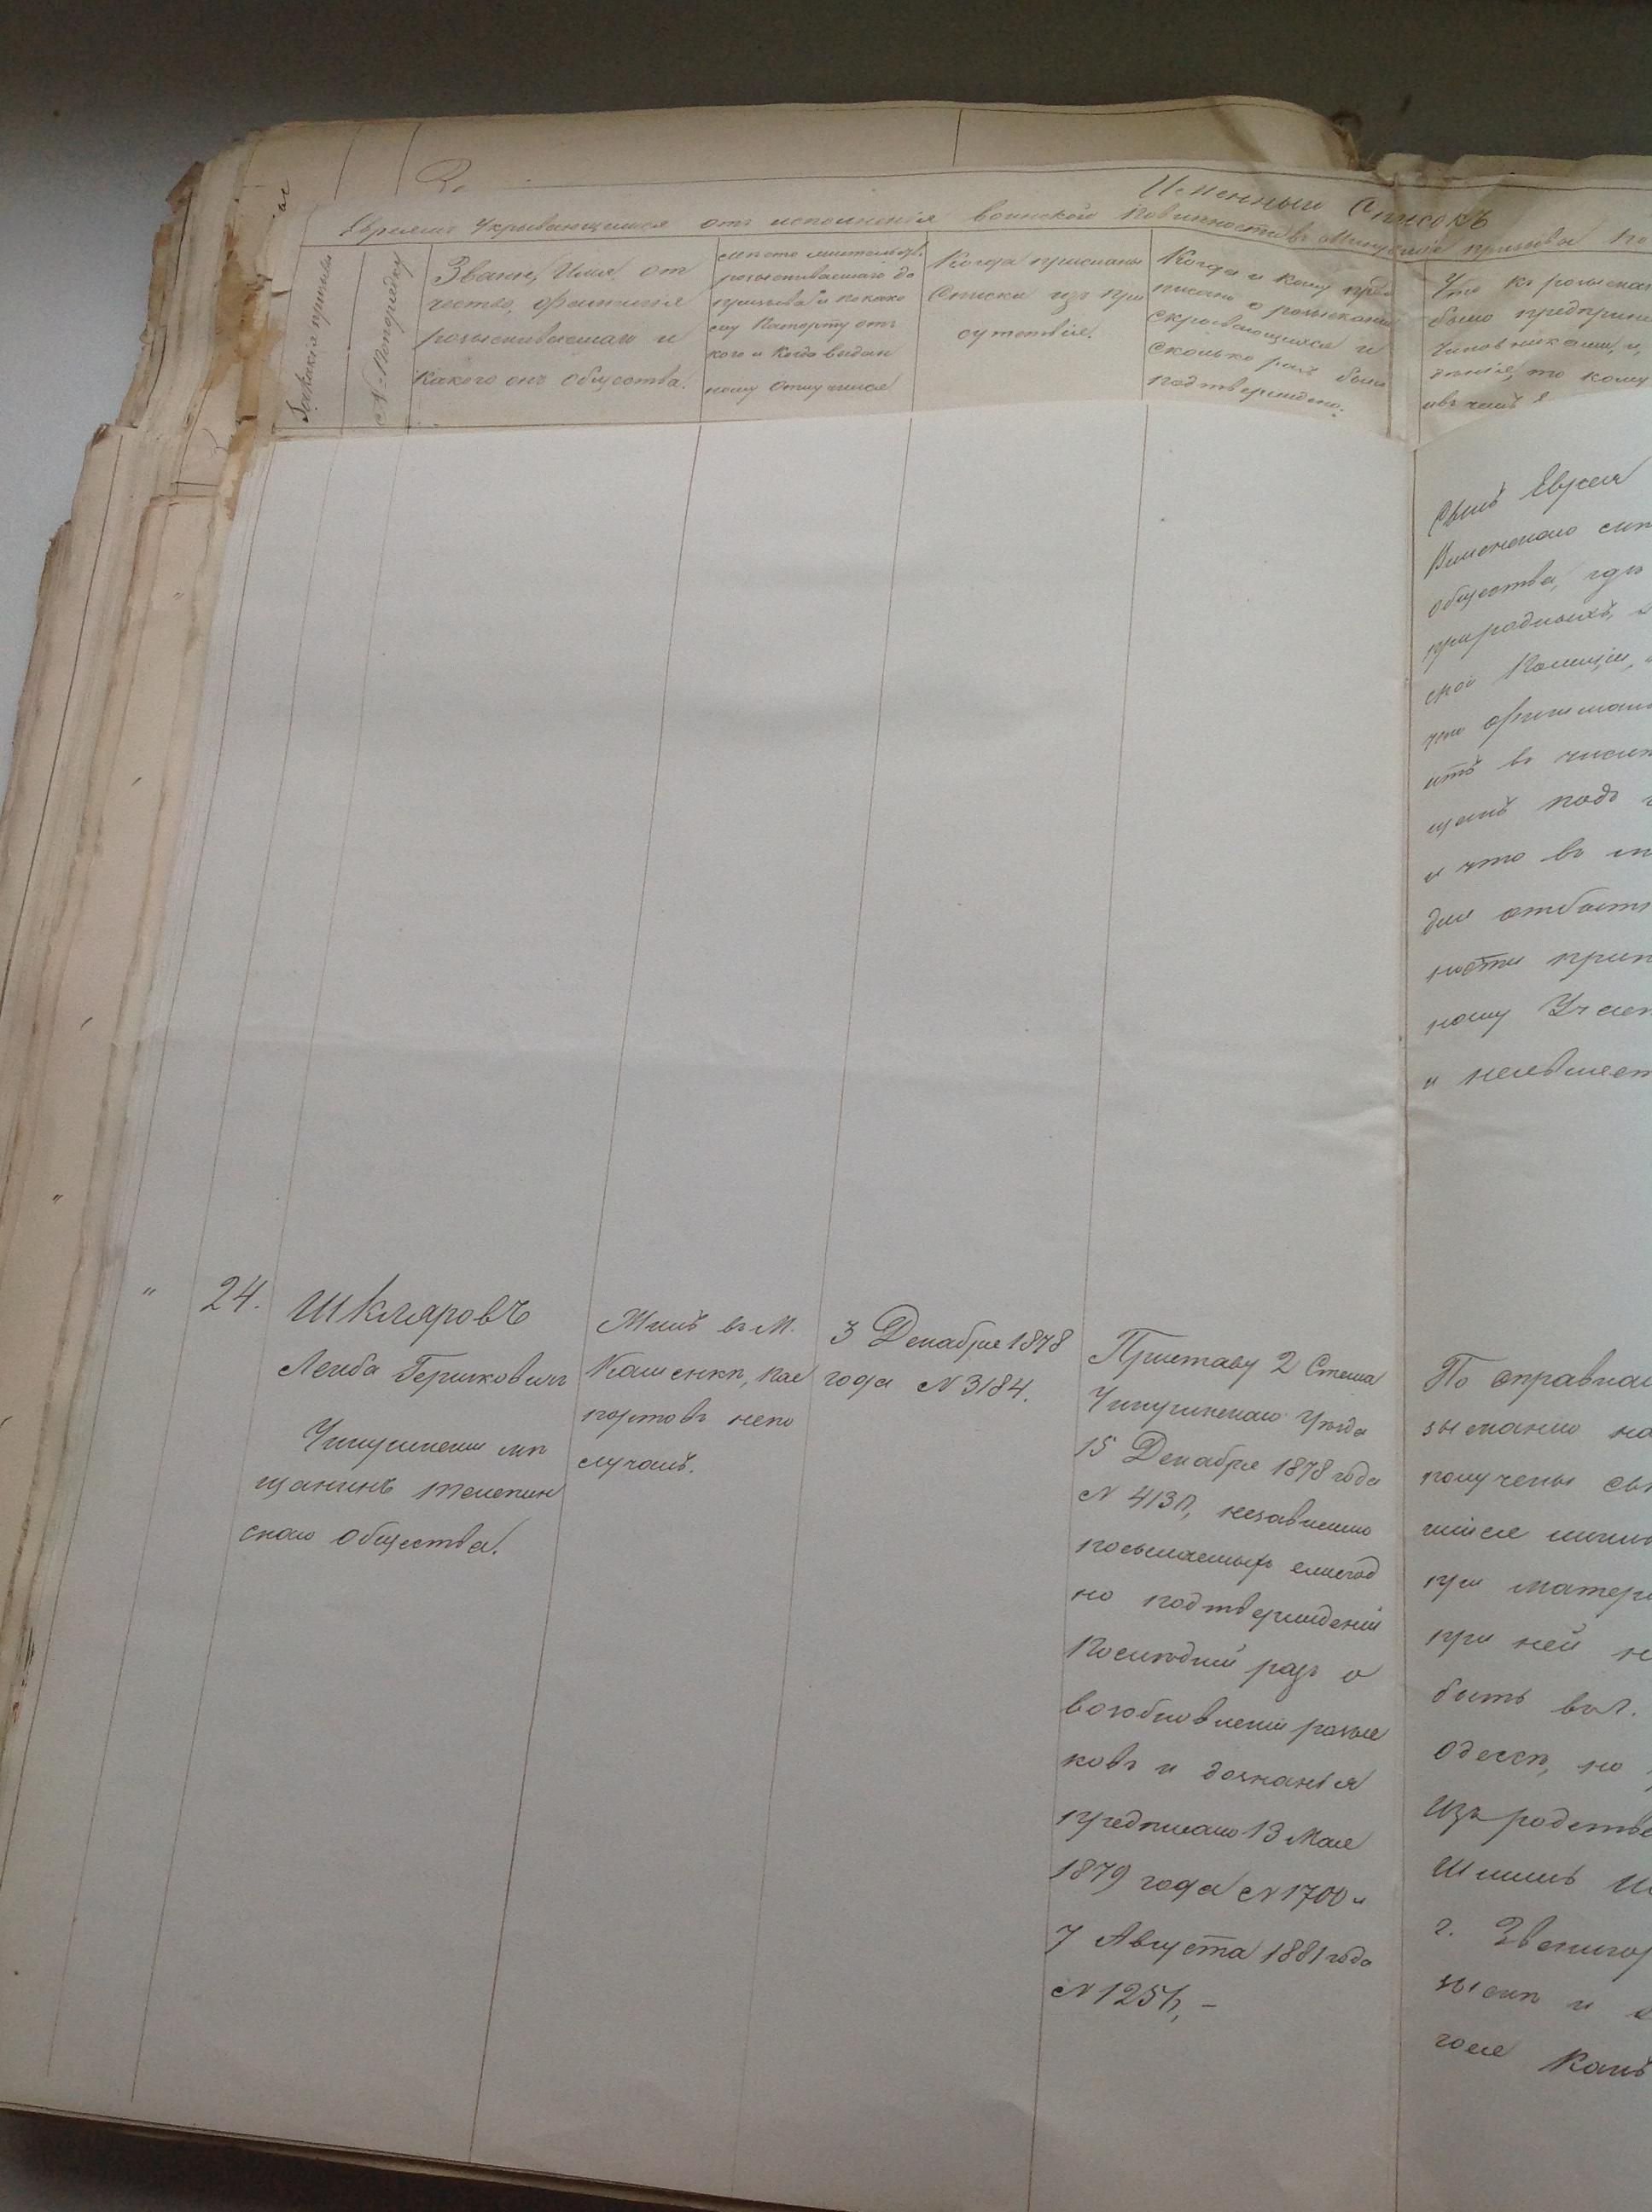 Именный Списокъ
Евреямъ Укрывающимся отъ исполненія воинской Повинности въ призыва
За какіе призывы
№ Попорядку
Званіе, Имя, от
чество, фамилія
розыскиваемаго и
Какого онъ общества.
место жительств.
розыскиваемаго до
призыва и по како
му Паспорту отъ
кого и Когда выдан
ному отлучился
Когда присланы
Списки изъ при
сутствія.
Когда и кому пред
писано о розысканіи
Скрывающихся и
Сколько разъ было
подтверждено.
Что къ розыскан
было предприн
чиновниками, и,
то кому
Сынъ Евреи
Виленскаго
общества, гдѣ
ской Полиціи,
что
итъ въ числѣ
щенъ подъ
и что въ
для отбыт
ности прип
ному Участ
и неявляет
" 24.
Шкляровъ
Лейба Гершковичъ
Чигиринскій мѣ
щанинъ Телепин
скаго общества.
Жилъ въ М.
Каменкѣ, пас
портовъ непо
лучалъ.
3 Декабря 1878
года № 3184.
Приставу 2 Стана
Чигиринскаго Уѣзда
15 Декабря 1878 года
№ 4130, независимо
посылаемыхъ ежегод
но подтвержденій
Послѣдній разъ о
возобновленіи розыс
ковъ и дознанія
предписано 13 Мая
1879 года № 1700 и
7 Августа 1881 года
№ 1257, –
По справкам
зысканію на
получены свѣ
при матери
при ней н
быть въ г.
Одессѣ, но
Изъ родстве
г. Звенигор
зыскѣ и
Какъ